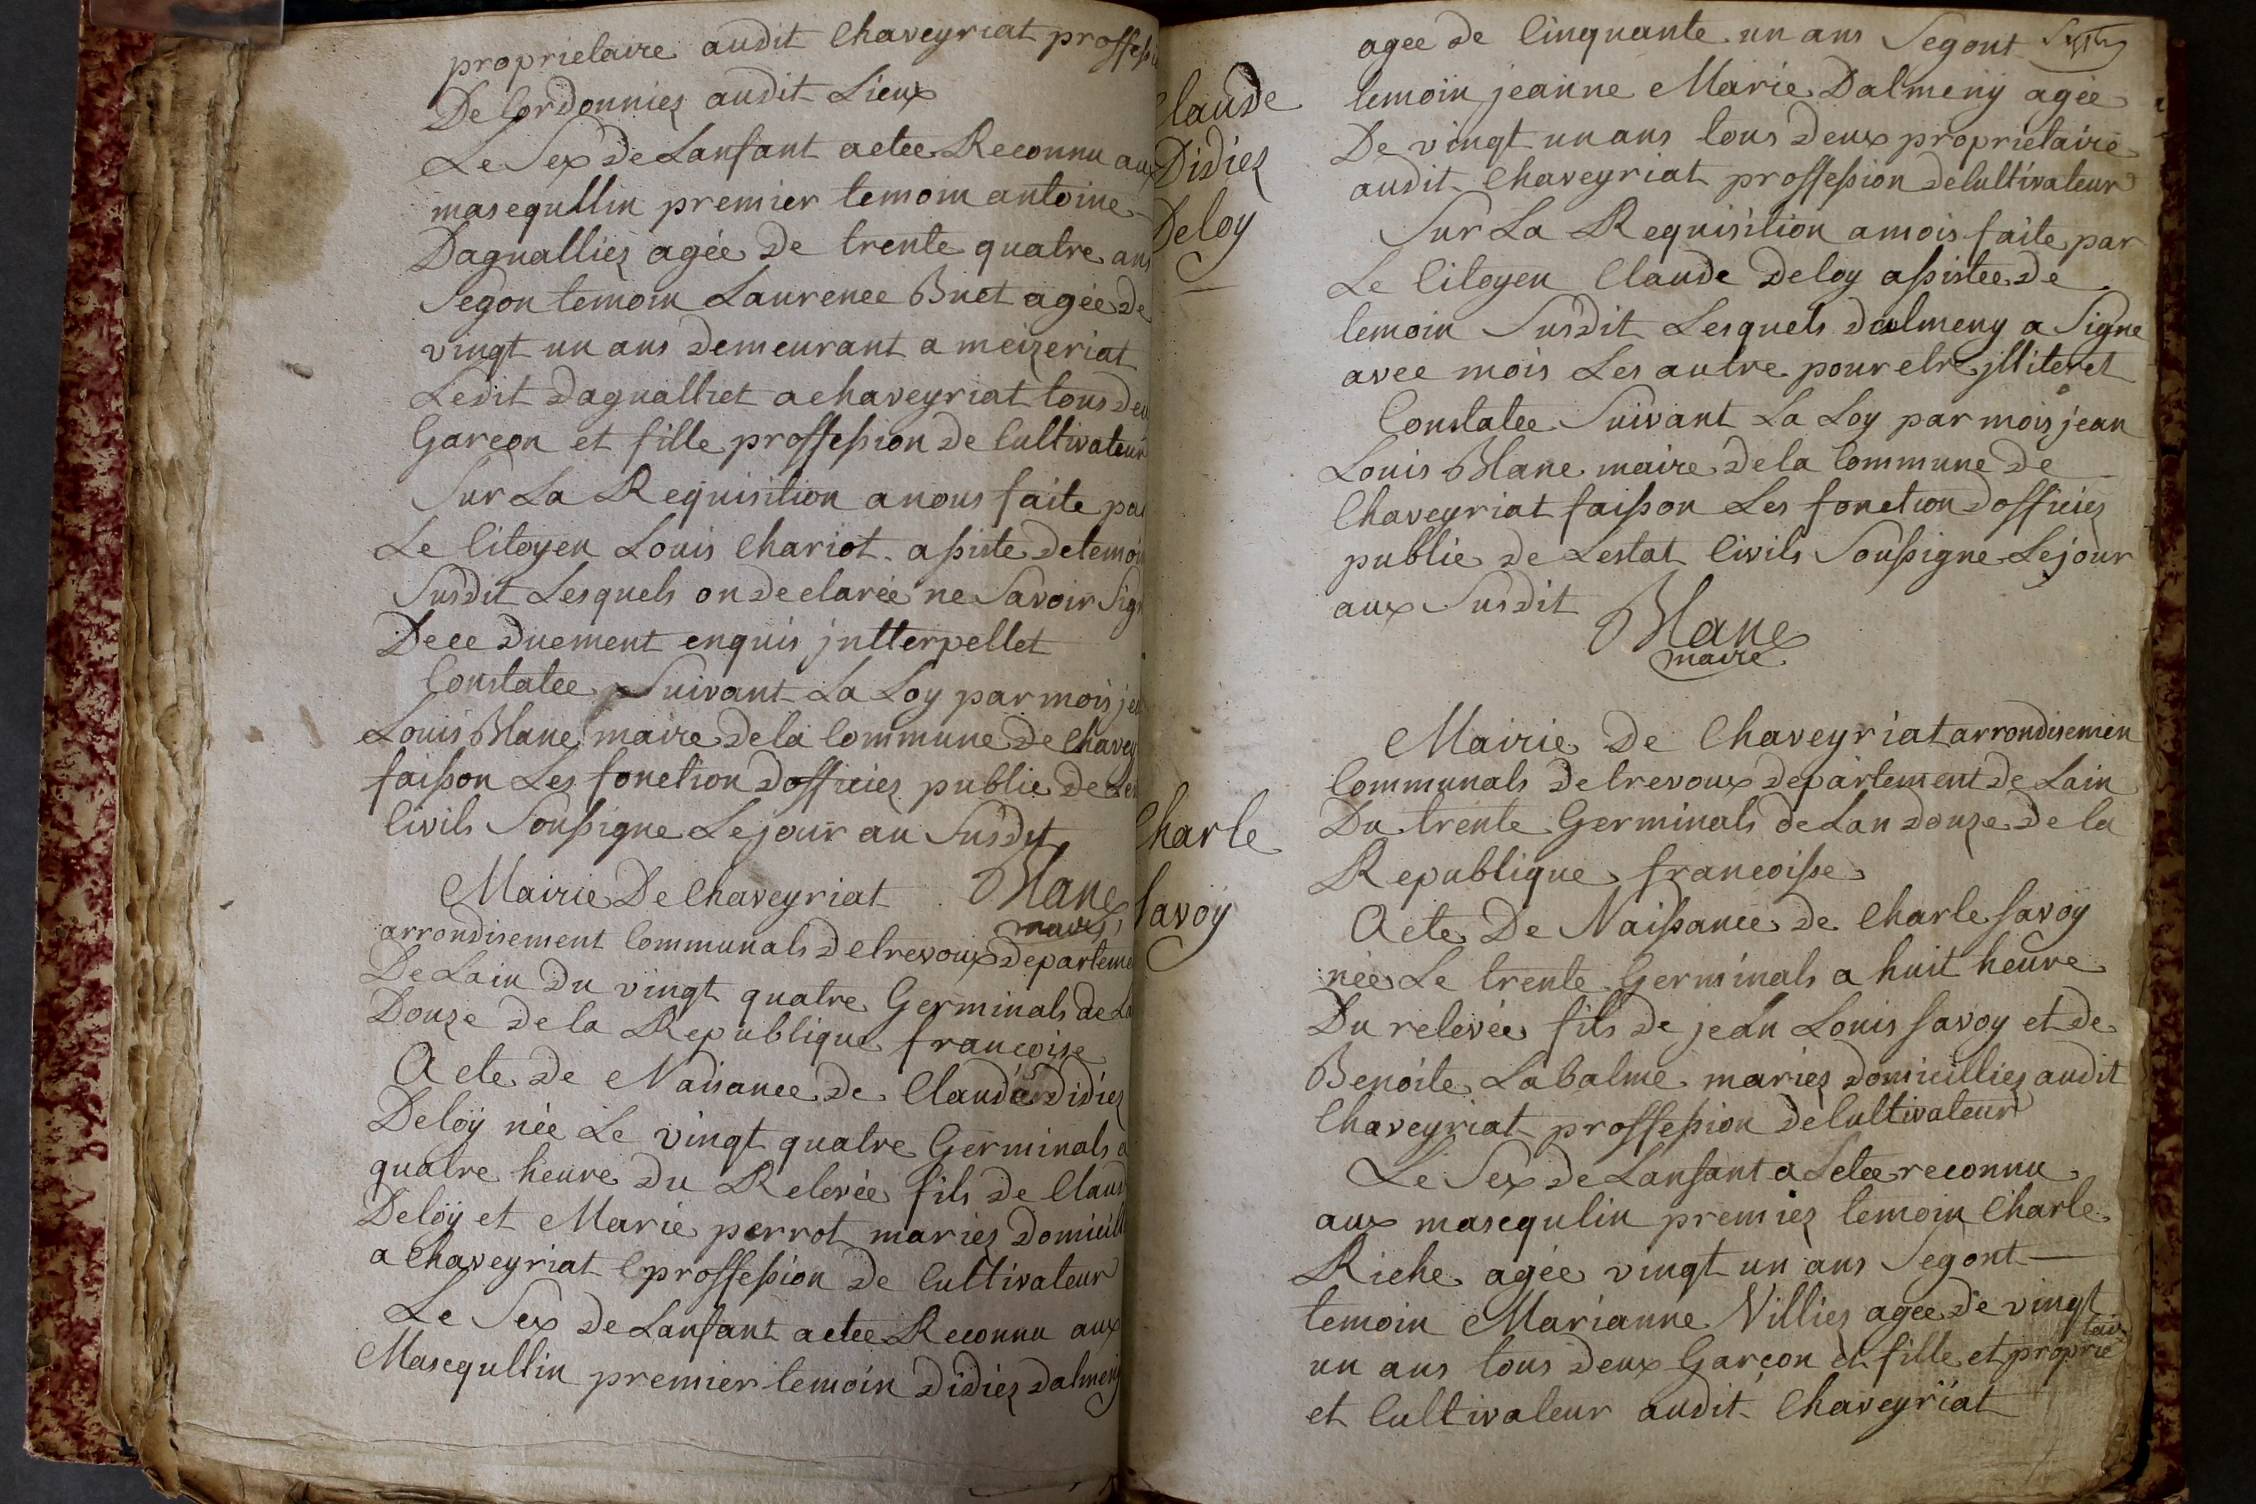 proprietaire audit Chaveyriat proffessi
De Cordonnier audit Lieux
Le Sex de Lanfant aetee Reconnu aux
masequllin premier temoin antoine
Dagnallier agée De trente quatre ans
Segon temoin Laurence Buet agée de
vingt un ans Demeurant a meizeriat
Ledit Dagnalliet a chaveyriat tous deu
Garcon et fille proffession de Cultivateur
Sur La Requisition a nous faite par
Le Citoyen Louis Chariot assiste de temoin
Susdit Lesquels on declarée ne Savoir Sign
De ce duement enquis jntterpellet
Constatee Suivant La Loy par mois je
Louis Blanc maire de la Commune de Chavey
faisson Les fonction dofficier public de Les
Civils Soussigne Le jour au Susdit
Blanc
maire
Mairie De Chaveyriat
arrondisement Communals de trevoux departeme
De Lain Du vingt quatre Germinals de La
Douze de la Republique françoise
Acte de Naisance de Claude Didier
Deloÿ née Le vingt quatre Germinals a
quatre heure du Relevée fils de Claud
Deloÿ et Marie perrot mariez Domicill
a Chaveyriat proffession de Cultivateur
Le Sex de Lanfant aetee Reconnu aux
Masequllin premier temoin Didier dalmeny
Claude
Didier
Deloy
agee de Cinquante un ans Segont
temoin jeanne Marie Dalmeny agée
De vingt un ans tous deux proprietaire
audit Chaveyriat proffession de Cultivateur
Sur La Requisition a mois faite par
Le Citoyen Claude Deloy assistee de
temoin Susdit Lesquels dalmeny a Signe
avec mois Les autre pour etre jlliteret
Constatee Suivant La Loy par mois jean
Louis Blanc maire de la Commune de
Chaveyriat faisson Les fonction dofficier
public de Lestat Civils Soussigne Le jour
aux Susdit
Blanc
maire
Charle
Savoÿ
Mairie De Chaveyriat arrondisemen
Communals de trevoux departement de Lain
Du trente Germinals de Lan douze de la
Republique francoisse
Acte De Naissance de Charle Savoÿ
née Le trente Germinals a huit heure
Du relevée fils de jean Louis Savoy et de
Benoite Labalme mariez domicilliez audit
Chaveyriat proffession de Cultivateur
Le Sex de Lanfant a Letee reconnu
aux masequlin premier temoin Charle
Riche agée vingt un ans Segont
temoin Marianne Villier agee de vingt
un ans tous deux Garcon et fille et proprietair
et Cultivateur audit Chaveyriat